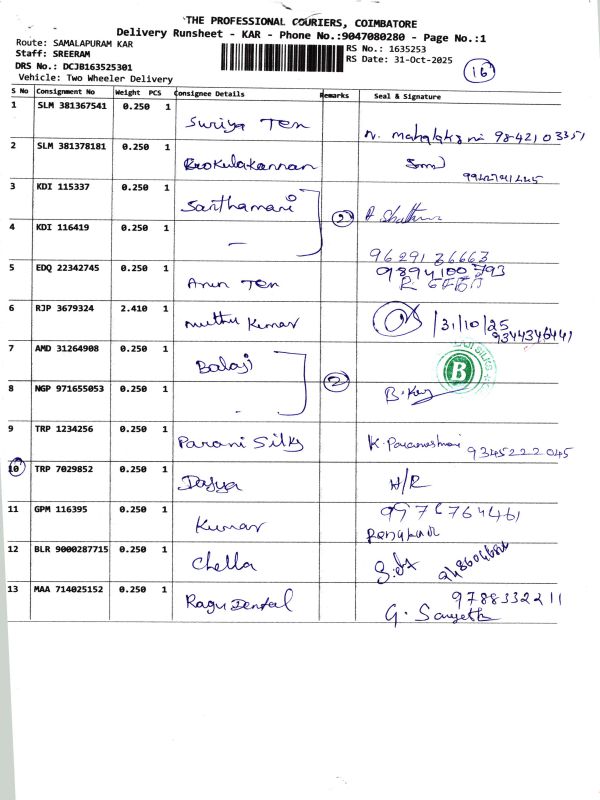 THE PROFESSIONAL COURIERS, COIMBATORE
Delivery Runsheet - KAR - Phone No.:9047080280 - Page No.:1
Route: SAMALAPURAM KAR
Staff: SREERAM
DRS No.: DCJB163525301
Vehicle: Two Wheeler Delivery
RS No.: 1635253
RS Date: 31-Oct-2025
16
S No Consignment No Weight PCS Consignee Details Remarks Seal & Signature
1 SLM 381367541 0.250 1 Suriya Tex N. 9842103351
2 SLM 381378181 0.250 1 Gokulakannan
3 KDI 115337 0.250 1 Santhamani 2
4 KDI 116419 0.250 1 - 9629136663
5 EDQ 22342745 0.250 1 Arun Tex 9894100593
6 RJP 3679324 2.410 1 Muthu Kumar 31/10/25
9344346441
7 AMD 31264908 0.250 1 Balaji 2 B
8 NGP 971655053 0.250 1 -
9 TRP 1234256 0.250 1 Parani Silks K. Parameshwari 9345222045
10 TRP 7029852 0.250 1 H/R
11 GPM 116395 0.250 1 Kumar 9976764461
12 BLR 9000287715 0.250 1 Chella
13 MAA 714025152 0.250 1 Ragu Dental 9788332211
G. Sangeetha